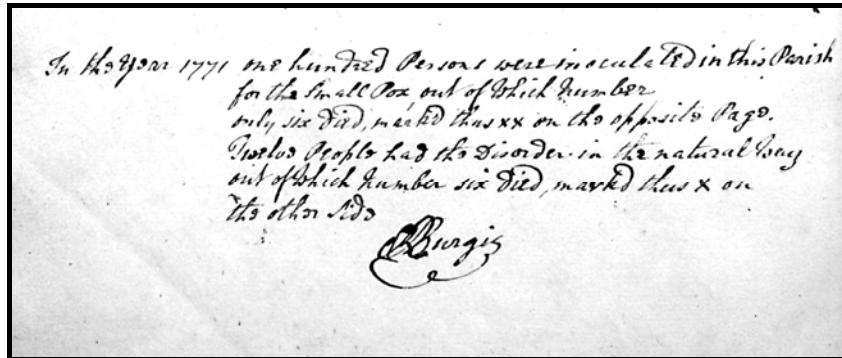 In the Year 1771 one hundred Persons were inoculated in this Parish
for the Small Pox, out of Which Number
only six died, mark'd thus xx on the opposite Page.
Twelve People had the Disorder in the natural Way
out of Which Number six Died, mark'd thus x on
the other Side
Burgis